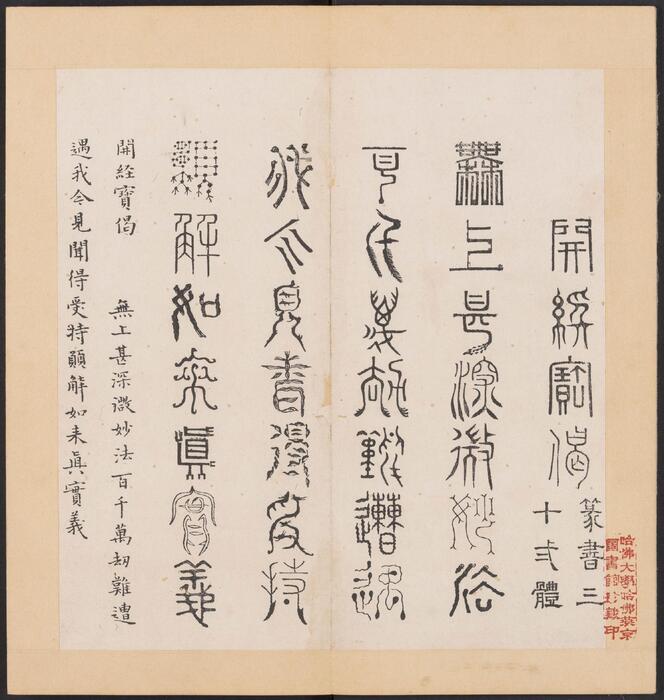 開經寶偈
篆書三
十弍體
無上甚深微妙法
百千萬劫難遭遇
我今見聞得受持
願解如來眞實義
開経寶偈 無上甚深微妙法百千萬劫難遭
遇我今見聞得受持願解如来眞實義
哈佛大學哈佛燕京
圖書館珍藏印